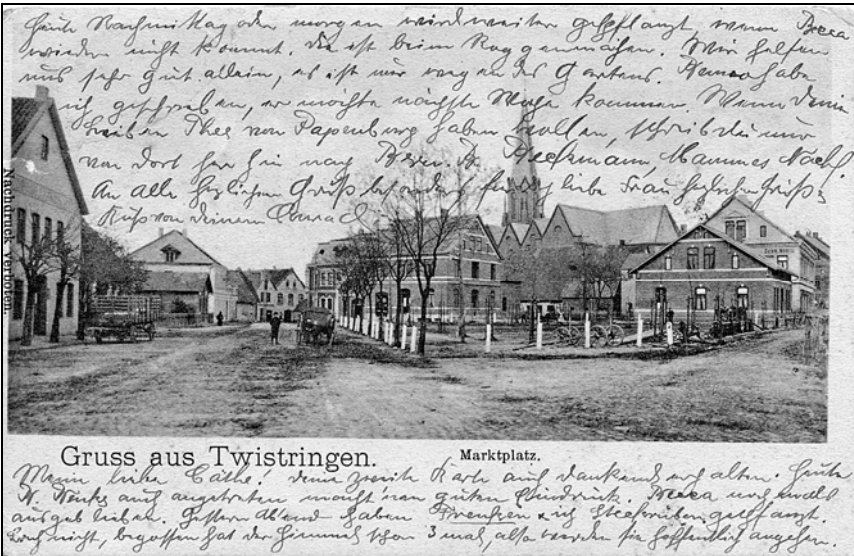 Heute Nachmittag oder morgen wird weiter gepflanzt, wenn Becca
wieder nicht kommt. Die ist beim Roggenmähen. Wir helfen
uns sehr gut allein, es ist nur wegen des Gartens. habe
ich geschrieben, er möchte nächste Woche kommen. Wenn Deine
Thee von Papenburg haben wollen, schreib Du nur
von dort her hin nach B. Heckmann, Mammes Nachf.
An alle herzlichen Gruß besonders für liebe Frau herzlichen Gruß
Kuß von Deinem Conrad
Nachdruck verboten.
Gruss aus Twistringen.
Marktplatz.
Mein liebe Cäthe! Deine zweite Karte auch dankend erhalten. Heute
auch angetreten macht 'nen guten Eindruck. Becca nochmals
ausgeblieben. Gestern Abend haben & ich Steckrüben gepflanzt.
nicht, begossen hat der Himmel schon 3 mal, also werden sie hoffentlich angehen.